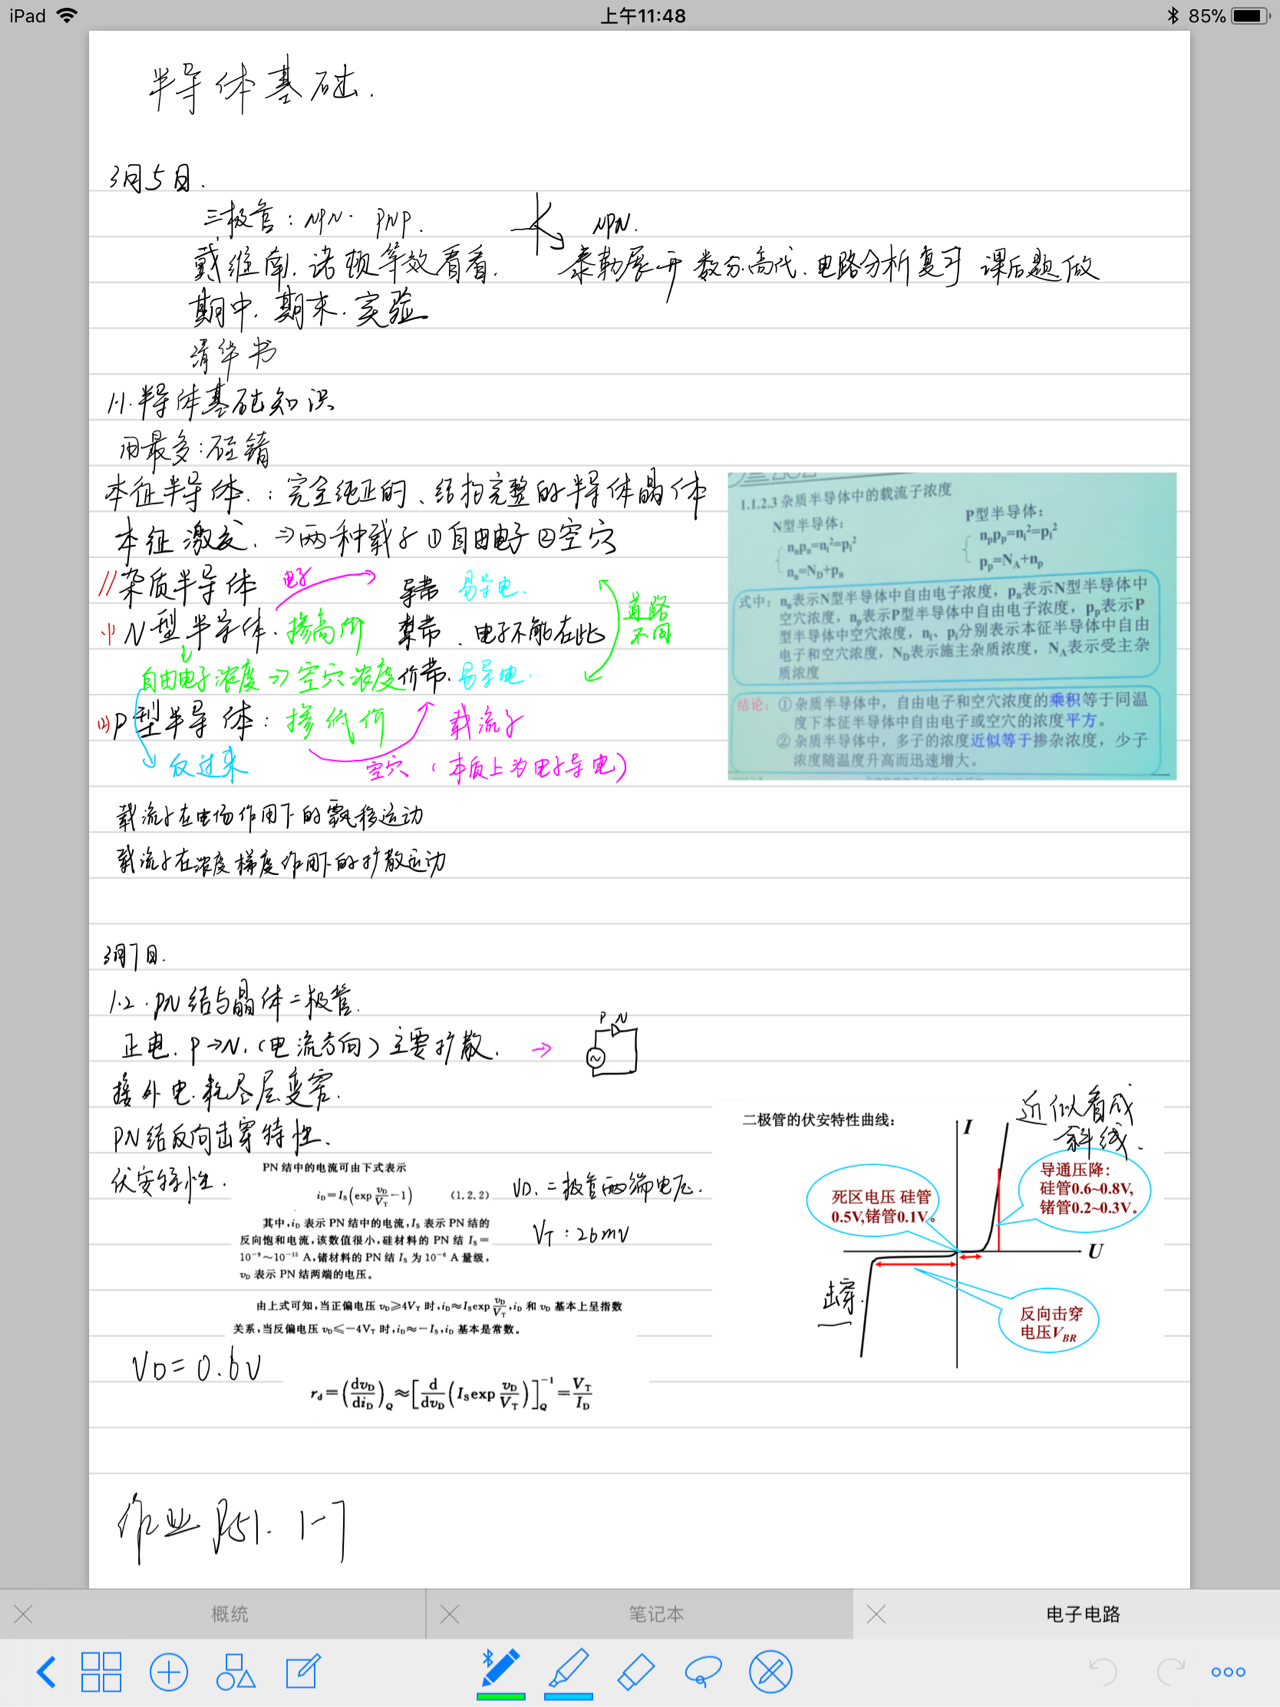 iPad
上午11:48
85%
半导体基础.
3月5日.
三极管: NPN. PNP.
NPN.
戴维南, 诺顿等效看看. 泰勒展开 数分.高代. 电路分析复习 课后题做
期中. 期末. 实验
清华书
1.1.半导体基础知识
用最多:硅锗
本征半导体.: 完全纯正的、结构完整的半导体晶体
本征激发. →两种载子①自由电子②空穴
//杂质半导体 电子 导带 易导电.
(1) N型半导体. 掺高价 禁带. 电子不能在此 道路不同
自由电子浓度>>空穴浓度 价带. 易导电.
(2) P型半导体: 掺低价 载流子
反过来 空穴 (本质上为电子导电)
1.1.2.3 杂质半导体中的载流子浓度
N型半导体: P型半导体:
nₙpₙ=nᵢ²=pᵢ² nₚpₚ=nᵢ²=pᵢ²
nₙ=N_D+pₙ pₚ=N_A+nₚ
式中: nₙ表示N型半导体中自由电子浓度, pₙ表示N型半导体中
空穴浓度, nₚ表示P型半导体中自由电子浓度, pₚ表示P
型半导体中空穴浓度, nᵢ、pᵢ分别表示本征半导体中自由
电子和空穴浓度, N_D表示施主杂质浓度, N_A表示受主杂
质浓度
结论: ①杂质半导体中, 自由电子和空穴浓度的乘积等于同温
度下本征半导体中自由电子或空穴的浓度平方。
②杂质半导体中, 多子的浓度近似等于掺杂浓度, 少子
浓度随温度升高而迅速增大。
载流子在电场作用下的飘移运动
载流子在浓度梯度作用下的扩散运动
3月7日.
1.2.PN结与晶体二极管.
正电. P→N.(电流方向) 主要扩散. →
P N
接外电.耗尽层变窄.
PN结反向击穿特性.
伏安特性.
PN 结中的电流可由下式表示
i_D=I_S(exp v_D/V_T −1) (1.2.2)
其中,i_D 表示 PN 结中的电流,I_S 表示 PN 结的
反向饱和电流,该数值很小,硅材料的 PN 结 I_S=
10⁻⁹~10⁻¹⁵ A,锗材料的 PN 结 I_S 为 10⁻⁶ A 量级,
v_D 表示 PN 结两端的电压。
由上式可知,当正偏电压 v_D≥4V_T 时,i_D≈I_S exp v_D/V_T,i_D 和 v_D 基本上呈指数
关系,当反偏电压 v_D≤−4V_T 时,i_D≈−I_S,i_D 基本是常数。
VD. 二极管两端电压.
V_T: 26mV
二极管的伏安特性曲线:
I
近似看成
斜线.
死区电压 硅管
0.5V,锗管0.1V。
导通压降:
硅管0.6~0.8V,
锗管0.2~0.3V。
U
击穿.
反向击穿
电压V_BR
VD=0.6V
r_d=(dv_D/di_D)_Q≈[d/dv_D(I_S exp v_D/V_T)]_Q⁻¹=V_T/I_D
作业 P51. 1-7
概统
笔记本
电子电路